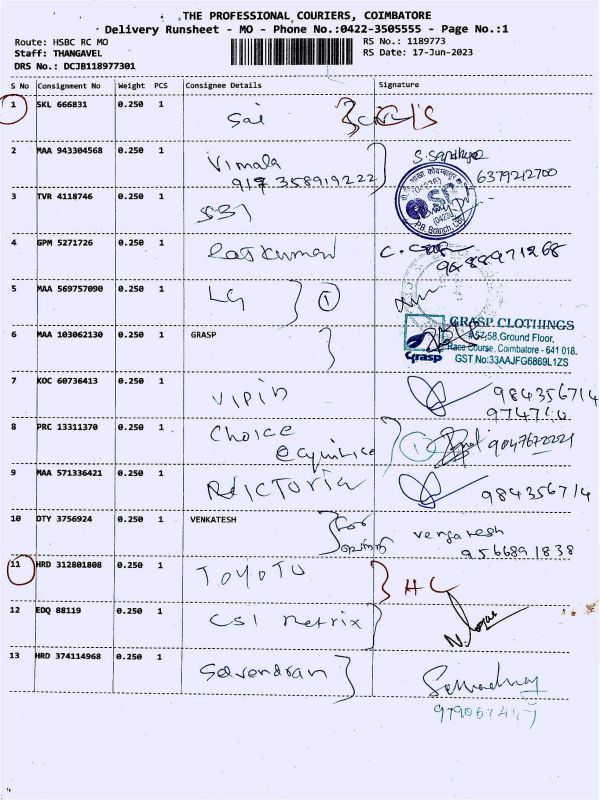 THE PROFESSIONAL COURIERS, COIMBATORE
Delivery Runsheet - MO - Phone No.:0422-3505555 - Page No.:1
Route: HSBC RC MO
RS No.: 1189773
Staff: THANGAVEL
RS Date: 17-Jun-2023
DRS No.: DCJB118977301
S No Consignment No Weight PCS Consignee Details Signature
1 SKL 666831 0.250 1 Sai
2 MAA 943304568 0.250 1 Vimala
917358919222
S. Sandhya
6379212700
3 TVR 4118746 0.250 1 SBI
4 GPM 5271726 0.250 1 Rajkumar
9488971268
5 MAA 569757090 0.250 1 LG 1
6 MAA 103062130 0.250 1 GRASP
GRASP CLOTHINGS
#57,58,Ground Floor,
Race Course, Coimbatore - 641 018.
GST No:33AAJFG6869L1ZS
Grasp
7 KOC 60736413 0.250 1 Vipin 984356714
8 PRC 13311370 0.250 1 Choice
Equities 1
9 MAA 571336421 0.250 1 984356714
10 DTY 3756924 0.250 1 VENKATESH
Venkatesh
9566891838
11 HRD 312801808 0.250 1 TOYOTO HC
12 EDQ 88119 0.250 1 CSI Metrix
13 HRD 374114968 0.250 1 Selvendran